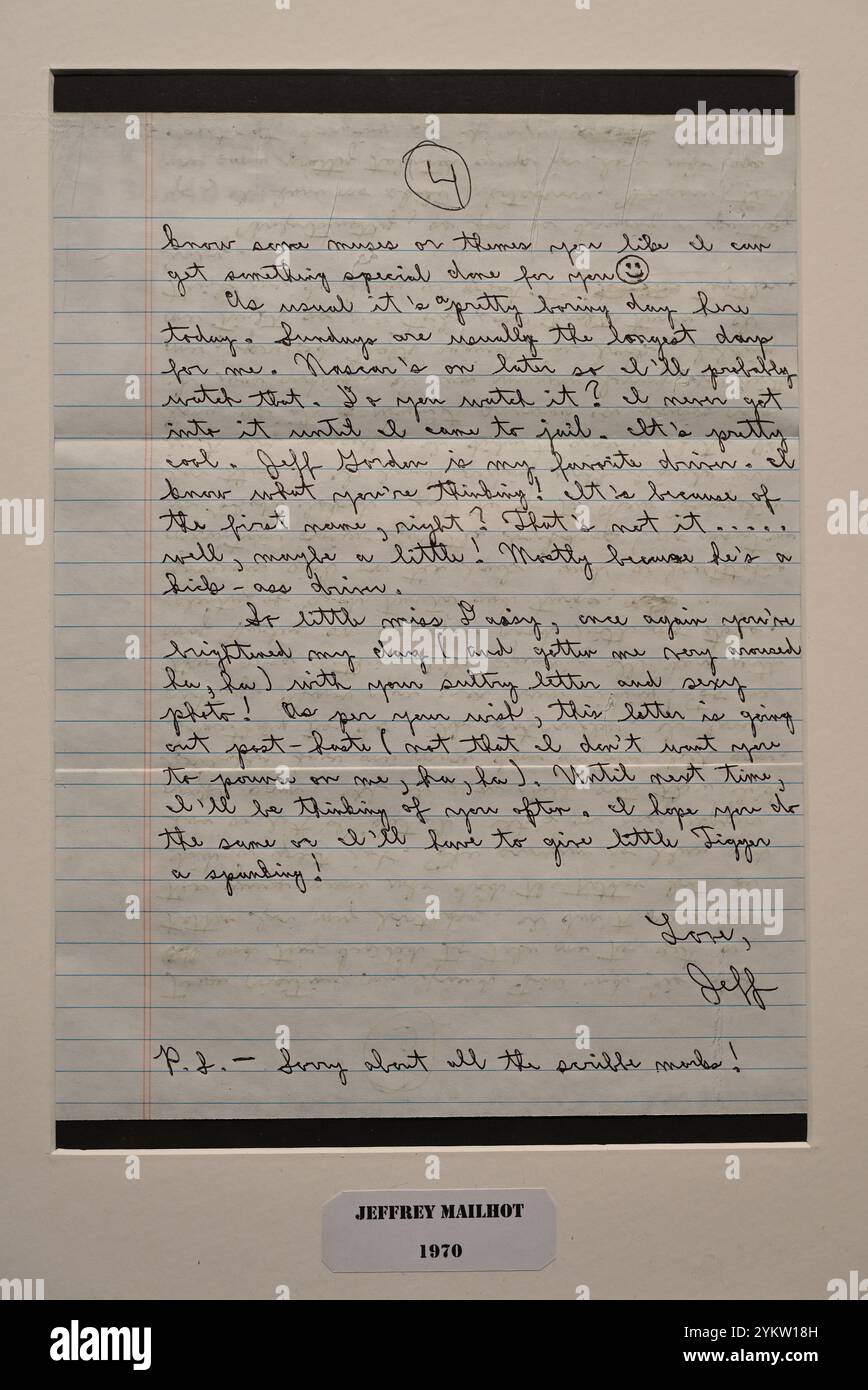 4
know some muses or themes you like I can
get something special done for you
As usual it's a pretty boring day here
today. Sundays are usually the longest days
for me. Nascar's on later so I'll probably
watch that. Do you watch it? I never got
into it until I came to jail. It's pretty
cool. Jeff Gordon is my favorite driver. I
know what you're thinking! It's because of
the first name, right? That's not it.....
well, maybe a little! Mostly because he's a
kick-ass driver.
So little miss Sassy, once again you've
brightened my day (and gotten me very aroused
ha, ha) with your sultry letter and sexy
photo! As per your wish, this letter is going
out post-haste (not that I don't want you
to pounce on me, ha, ha). Until next time,
I'll be thinking of you often. I hope you do
the same or I'll have to give little Tigger
a spanking!
Love,
Jeff
P.S. - Sorry about all the scribble marks!
JEFFREY MAILHOT
1970
alamy
Image ID: 2YKW18H
www.alamy.com